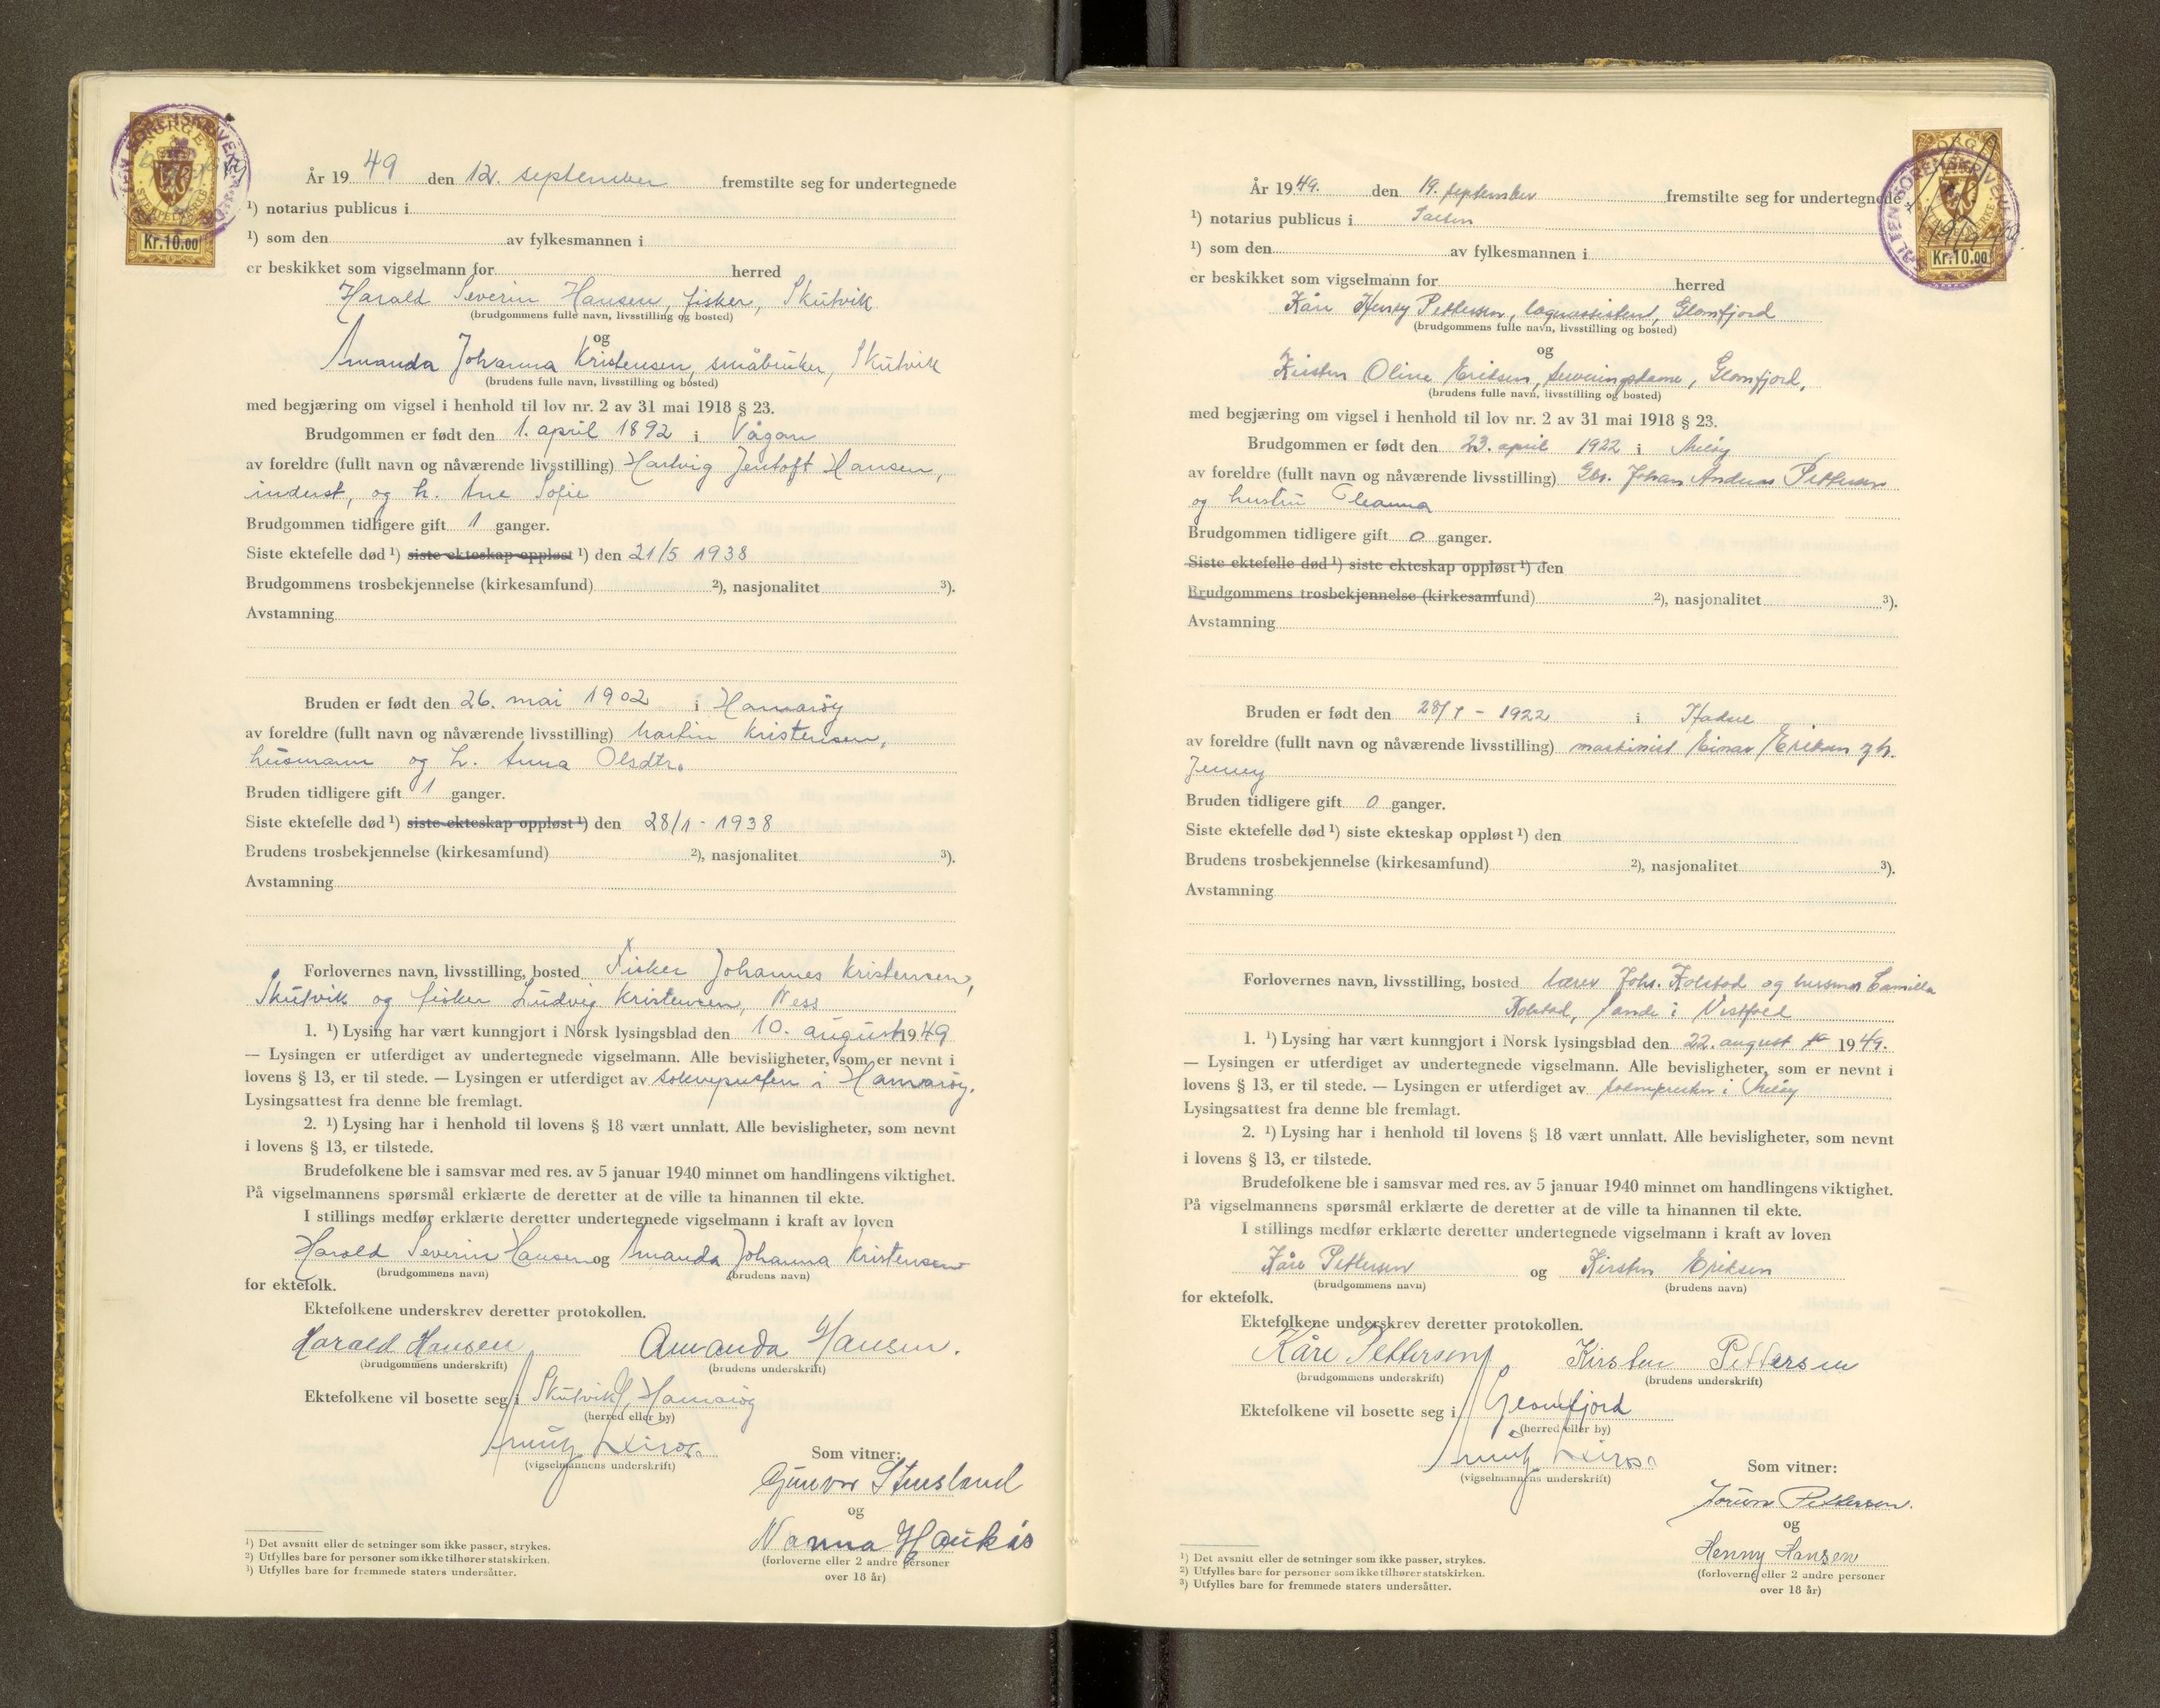 År 1949 den 12. september fremstilte seg for undertegnede
¹) notarius publicus i
¹) som den av fylkesmannen i
er beskikket som vigselmann for herred
Harald Severin Hansen, fisker, Skutvik
(brudgommens fulle navn, livsstilling og bosted)
og
Amanda Johanna Kristensen, småbruker, Skutvik
(brudens fulle navn, livsstilling og bosted)
med begjæring om vigsel i henhold til lov nr. 2 av 31 mai 1918 § 23.
Brudgommen er født den 1. april 1892 i Vågan
av foreldre (fullt navn og nåværende livsstilling) Hartvig Jentoft Hansen,
inderst, og h. Ane Sofie
Brudgommen tidligere gift 1 ganger.
Siste ektefelle død ¹) siste ekteskap oppløst ¹) den 21/5 1938
Brudgommens trosbekjennelse (kirkesamfund) ²), nasjonalitet ³).
Avstamning
Bruden er født den 26. mai 1902 i Hamarøy
av foreldre (fullt navn og nåværende livsstilling) Martin Kristensen,
husmann og h. Anna Olsdtr.
Bruden tidligere gift 1 ganger.
Siste ektefelle død ¹) siste ekteskap oppløst ¹) den 28/1 - 1938
Brudens trosbekjennelse (kirkesamfund) ²), nasjonalitet ³).
Avstamning
Forlovernes navn, livsstilling, bosted Fisker Johannes Kristensen,
Skutvik og fisker Ludvig Kristensen, Ness
1. ¹) Lysing har vært kunngjort i Norsk lysingsblad den 10. august 1949
— Lysingen er utferdiget av undertegnede vigselmann. Alle bevisligheter, som er nevnt i
lovens § 13, er til stede. — Lysingen er utferdiget av soknepresten i Hamarøy.
Lysingsattest fra denne ble fremlagt.
2. ¹) Lysing har i henhold til lovens § 18 vært unnlatt. Alle bevisligheter, som nevnt
i lovens § 13, er tilstede.
Brudefolkene ble i samsvar med res. av 5 januar 1940 minnet om handlingens viktighet.
På vigselmannens spørsmål erklærte de deretter at de ville ta hinannen til ekte.
I stillings medfør erklærte deretter undertegnede vigselmann i kraft av loven
Harald Severin Hansen og Amanda Johanna Kristensen
(brudgommens navn) (brudens navn)
for ektefolk.
Ektefolkene underskrev deretter protokollen.
Harald Hansen Amanda Hansen.
(brudgommens underskrift) (brudens underskrift)
Ektefolkene vil bosette seg i Skutvik, Hamarøy
(herred eller by)
(vigselmannens underskrift)
Som vitner:
Gunvor Stensland
og
Nanna Haukås
(forloverne eller 2 andre personer
over 18 år)
¹) Det avsnitt eller de setninger som ikke passer, strykes.
²) Utfylles bare for personer som ikke tilhører statskirken.
³) Utfylles bare for fremmede staters undersåtter.
NORGE
Kr.10.00
År 1949. den 19. september fremstilte seg for undertegnede
¹) notarius publicus i Salten
¹) som den av fylkesmannen i
er beskikket som vigselmann for herred
Kåre Henry Pettersen, lagerassistent, Glomfjord
(brudgommens fulle navn, livsstilling og bosted)
og
Kirsten Oline Eriksen, serveringsdame, Glomfjord,
(brudens fulle navn, livsstilling og bosted)
med begjæring om vigsel i henhold til lov nr. 2 av 31 mai 1918 § 23.
Brudgommen er født den 23. april 1922 i Meløy
av foreldre (fullt navn og nåværende livsstilling) Gbr. Johan Andreas Pettersen
og hustru Oleanna
Brudgommen tidligere gift 0 ganger.
Siste ektefelle død ¹) siste ekteskap oppløst ¹) den
Brudgommens trosbekjennelse (kirkesamfund) ²), nasjonalitet ³).
Avstamning
Bruden er født den 28/1 - 1922 i Hadsel
av foreldre (fullt navn og nåværende livsstilling) maskinist Einar Eriksen og h.
Jenny
Bruden tidligere gift 0 ganger.
Siste ektefelle død ¹) siste ekteskap oppløst ¹) den
Brudens trosbekjennelse (kirkesamfund) ²), nasjonalitet ³).
Avstamning
Forlovernes navn, livsstilling, bosted lærer Johs. Kolstad og husmor Camilla
Kolstad, Sande i Vestfold
1. ¹) Lysing har vært kunngjort i Norsk lysingsblad den 22. august 1949.
— Lysingen er utferdiget av undertegnede vigselmann. Alle bevisligheter, som er nevnt i
lovens § 13, er til stede. — Lysingen er utferdiget av soknepresten i Meløy
Lysingsattest fra denne ble fremlagt.
2. ¹) Lysing har i henhold til lovens § 18 vært unnlatt. Alle bevisligheter, som nevnt
i lovens § 13, er tilstede.
Brudefolkene ble i samsvar med res. av 5 januar 1940 minnet om handlingens viktighet.
På vigselmannens spørsmål erklærte de deretter at de ville ta hinannen til ekte.
I stillings medfør erklærte deretter undertegnede vigselmann i kraft av loven
Kåre Pettersen og Kirsten Eriksen
(brudgommens navn) (brudens navn)
for ektefolk.
Ektefolkene underskrev deretter protokollen.
Kåre Pettersen Kirsten Pettersen
(brudgommens underskrift) (brudens underskrift)
Ektefolkene vil bosette seg i Glomfjord
(herred eller by)
(vigselmannens underskrift)
Som vitner:
Jorun Pettersen.
og
Henny Hansen
(forloverne eller 2 andre personer
over 18 år)
¹) Det avsnitt eller de setninger som ikke passer, strykes.
²) Utfylles bare for personer som ikke tilhører statskirken.
³) Utfylles bare for fremmede staters undersåtter.
Kr.10.00